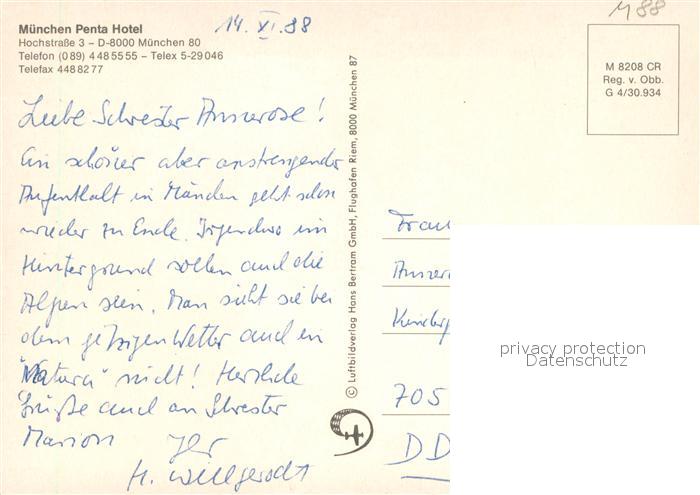 München Penta Hotel
Hochstraße 3 – D-8000 München 80
Telefon (0 89) 4 48 55 55 – Telex 5-29 046
Telefax 448 82 77
14. XI. 88
Liebe Schwester Annerose!
Ein schöner aber anstrengender
Aufenthalt in München geht schon
wieder zu Ende. Irgendwo im
Hintergrund sollen auch die
Alpen sein. Man sieht sie bei
dem jetzigen Wetter auch in
"Natura" nicht! Herzliche
Grüße auch an Schwester
Marion Ihr
H. Willgerodt
© Luftbildverlag Hans Bertram GmbH, Flughafen Riem, 8000 München 87
M 88
M 8208 CR
Reg. v. Obb.
G 4/30.934
Frau
705
DD
privacy protection
Datenschutz